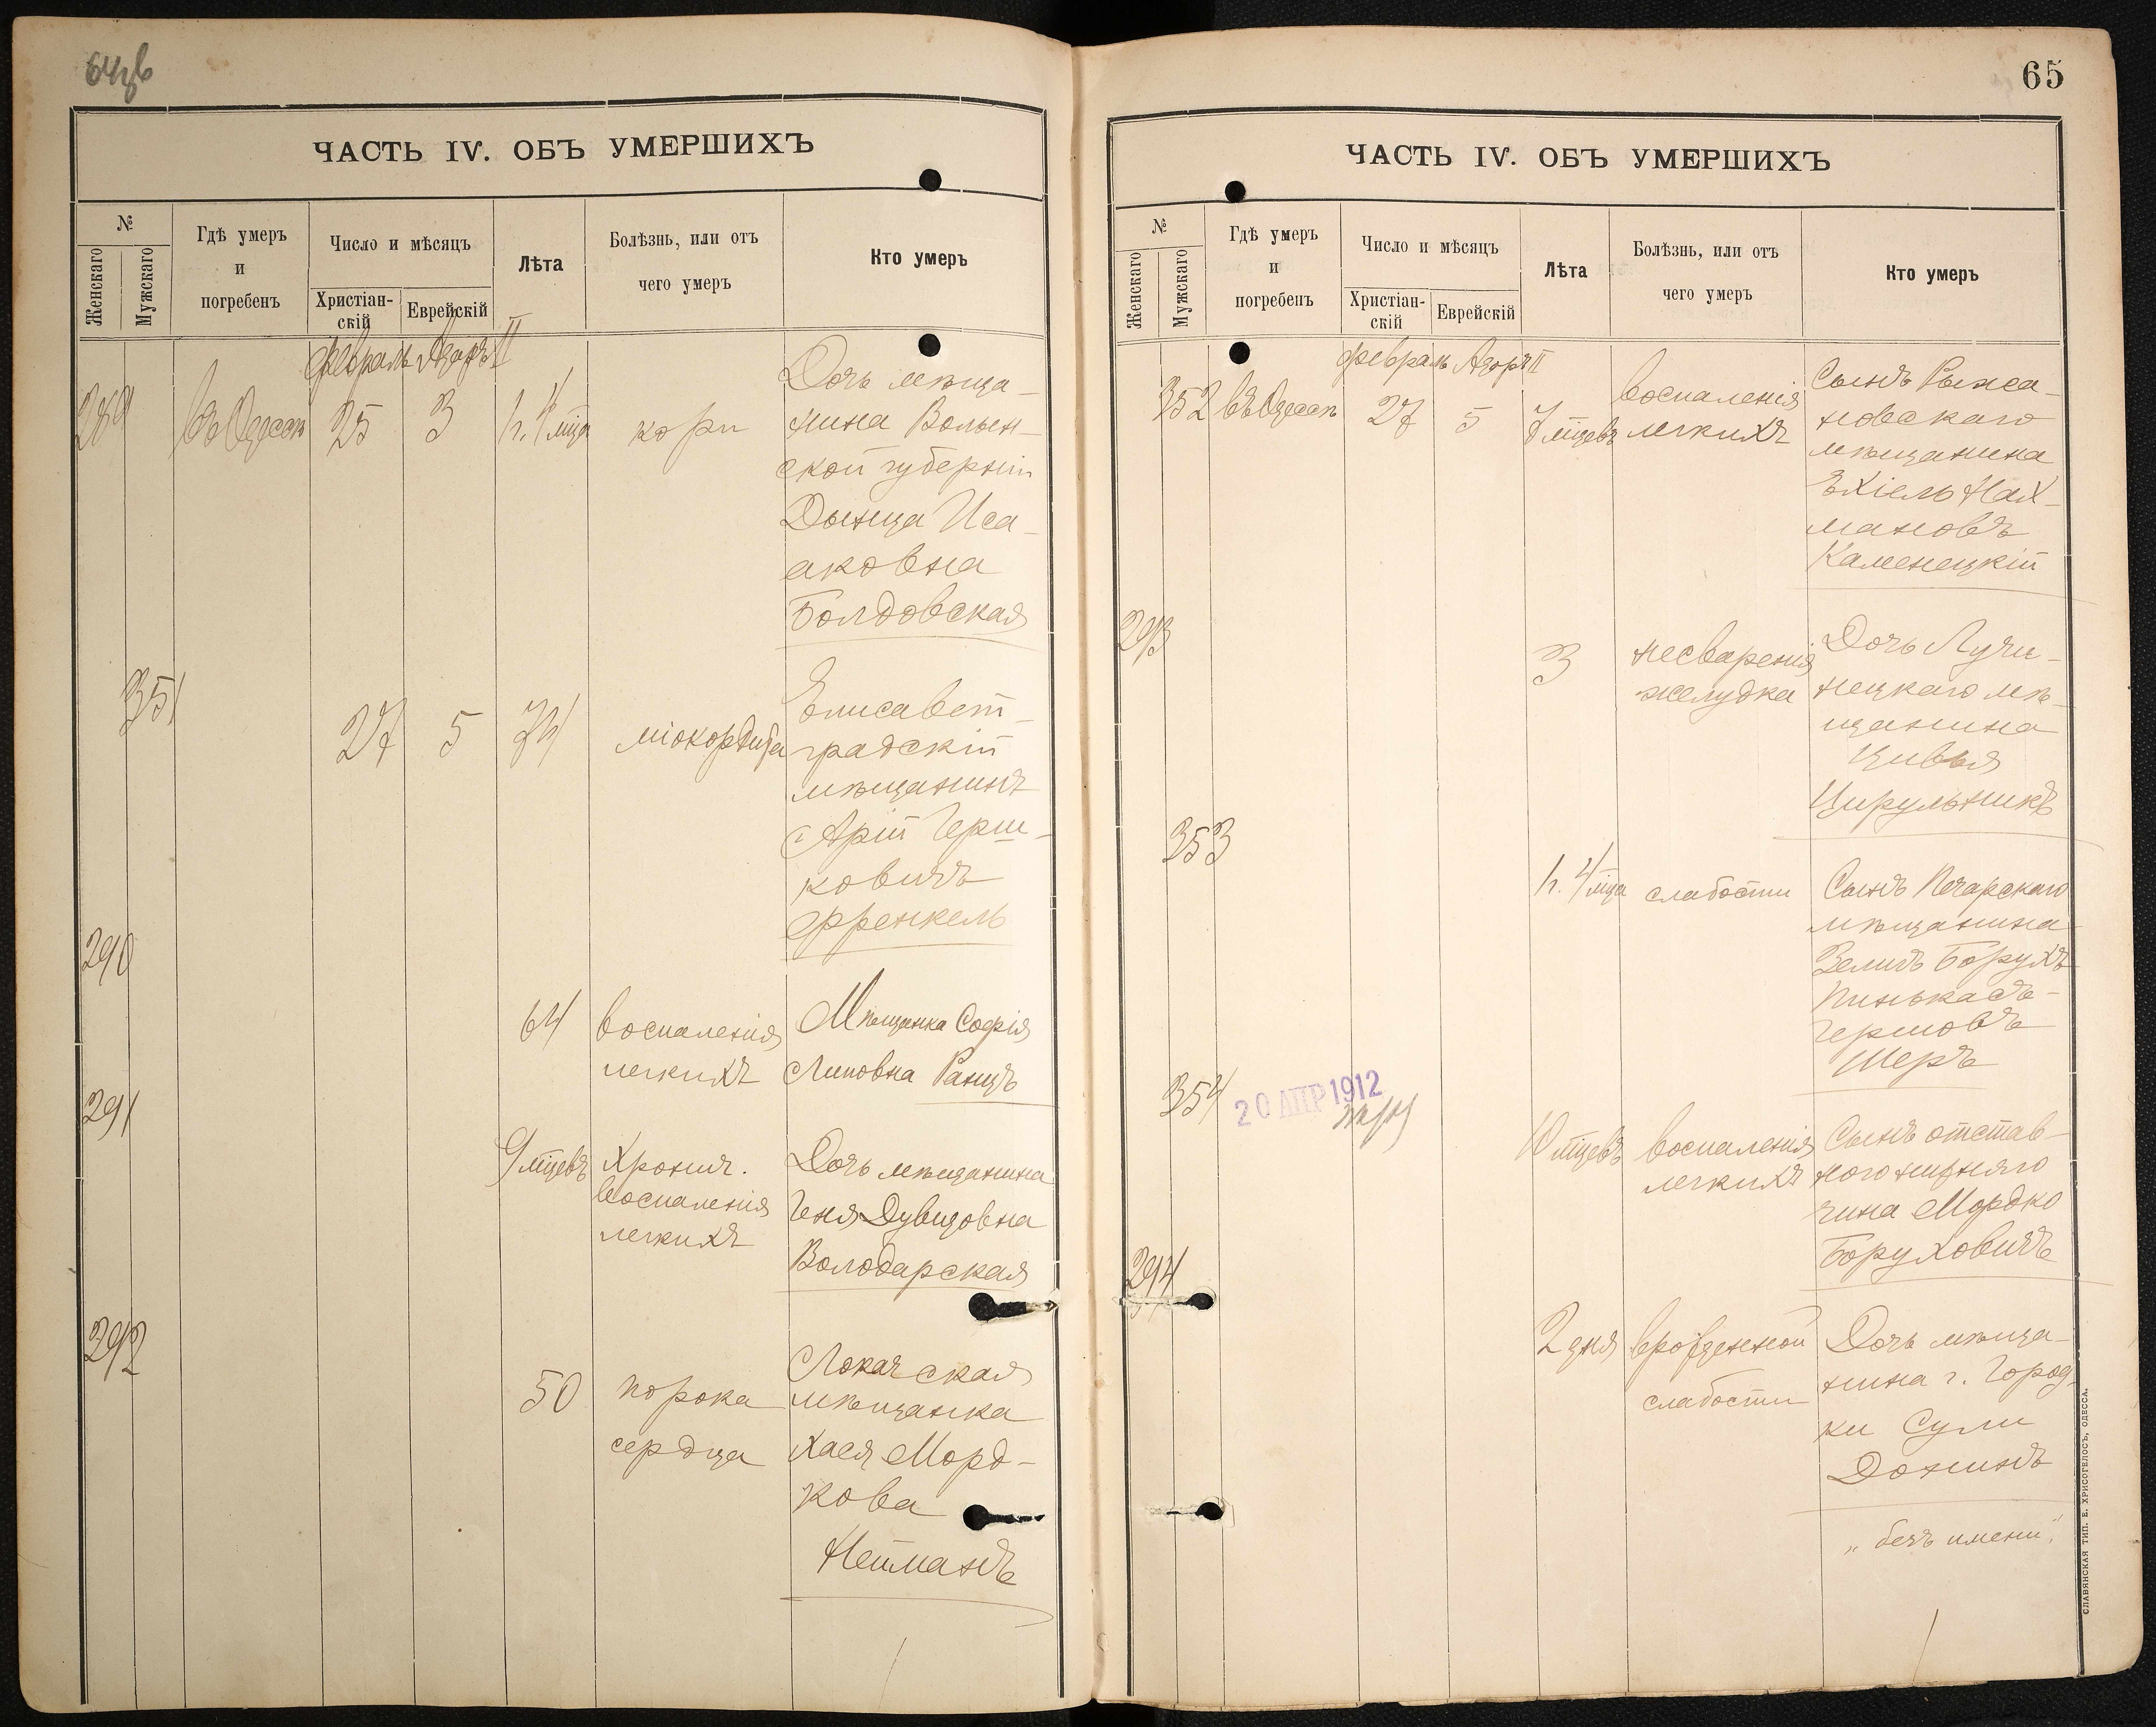 ЧАСТЬ IV. ОБЪ УМЕРШИХЪ
№
Женскаго
Мужскаго
Гдѣ умеръ
и
погребенъ
Число и мѣсяцъ
Христіан-
скій
Еврейскій
Лѣта
Болѣзнь, или отъ
чего умеръ
Кто умеръ
Февраль Адаръ II
289 въ Одессѣ 25 3 1 г. 4 мѣца кори
Дочь мѣща-
нина Волын-
ской губерніи
Дыница Иса-
аковна
Болдовская
351 27 5 74 міокордита
Елисавет-
градскій
мѣщанинъ
Арій Герш-
ковичъ
Френкель
290 64 воспаленія
легкихъ
Мѣщанка Софія
Липовна Ранцъ
291 9 мѣцевъ Хронич.
воспаленія
легкихъ
Дочь мѣщанина
Геня Дувидовна
Володарская
292 50 порока
сердца
Локачская
мѣщанка
Хася Морд-
кова
Нейманъ
65
ЧАСТЬ IV. ОБЪ УМЕРШИХЪ
№
Женскаго
Мужскаго
Гдѣ умеръ
и
погребенъ
Число и мѣсяцъ
Христіан-
скій
Еврейскій
Лѣта
Болѣзнь, или отъ
чего умеръ
Кто умеръ
Февраль Адаръ II
352 въ Одессѣ 27 5 7 мѣцевъ воспаленія
легкихъ
Сынъ Рыжа-
новскаго
мѣщанина
Ехіель Нах-
мановъ
Каменецкій
293 3 несваренія
желудка
Дочь Лучи-
нецкаго мѣ-
щанина
Цивья
Цирульникъ
353 1 г. 4 мѣца слабости
Сынъ Печарскаго
мѣщанина
Зелигъ Борухъ
Пинькасъ-
Гершовъ
Шеръ
354 20 АПР 1912
10 мѣцевъ воспаленія
легкихъ
Сынъ отстав-
ного нижняго
чина Мордко
Боруховичъ
294 2 дня врожденной
слабости
Дочь мѣща-
нина г. Город-
ки Сули
Донинъ
„безъ имени“.
СЛАВЯНСКАЯ ТИП. Е. ХРИСОГЕЛОСЪ, ОДЕССА.